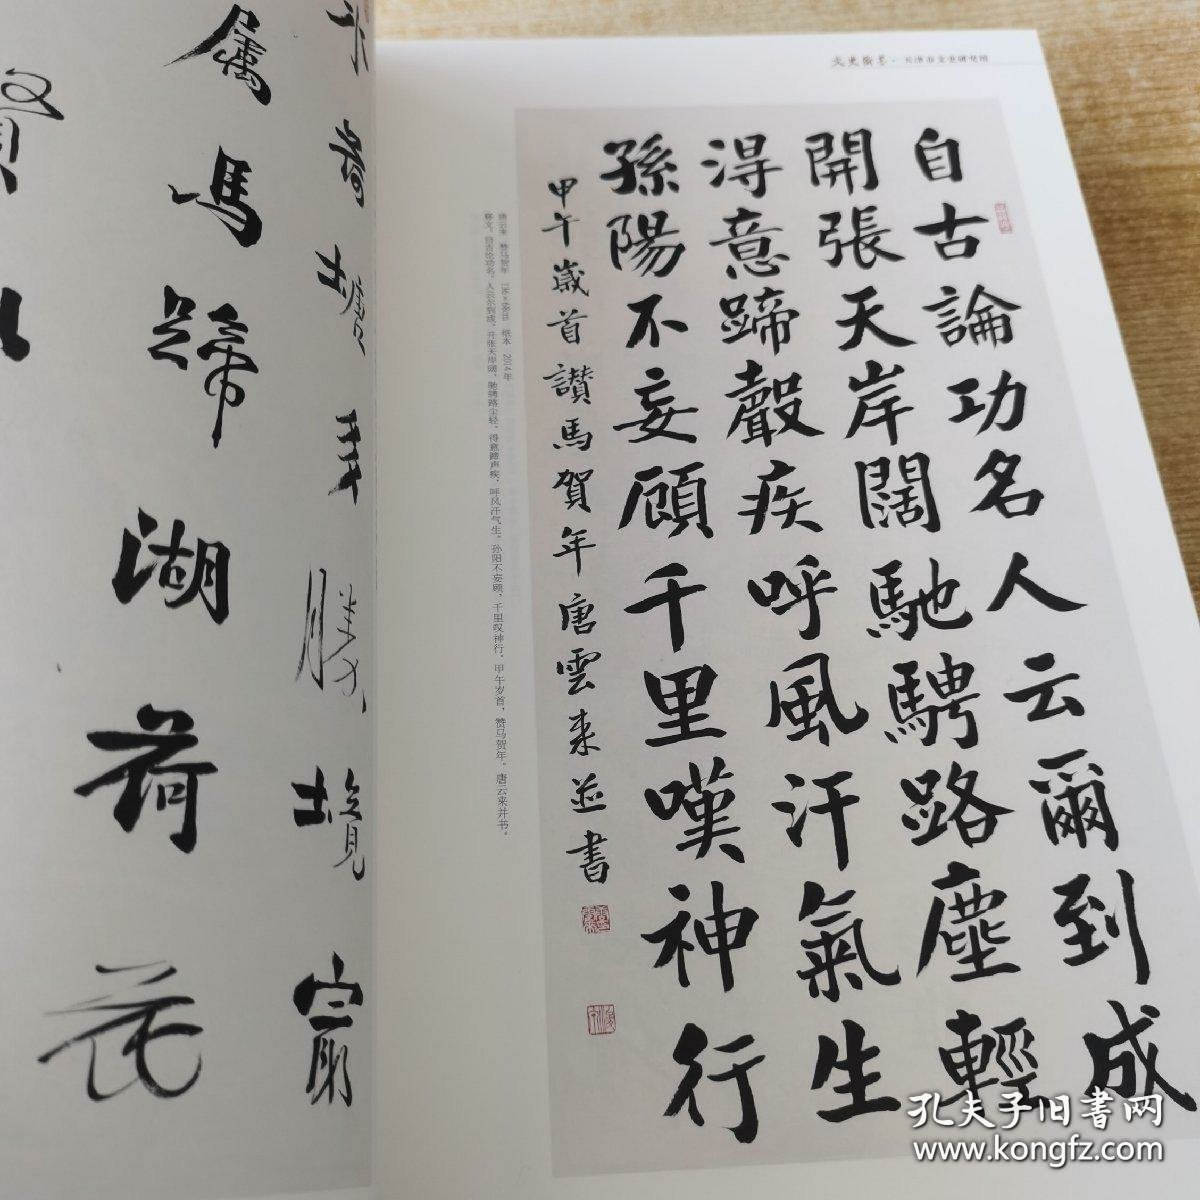 文史撷英·天津市文史研究馆
自古論功名人云爾到成
開張天岸闊馳騁路塵輕
得意蹄聲疾呼風汗氣生
孫陽不妄顧千里嘆神行
甲午歲首讃馬賀年唐雲来並書
唐云来 赞马贺年 136×68cm 纸本 2014年
释文：自古论功名，人云尔到成。开张天岸阔，驰骋路尘轻。得意蹄声疾，呼风汗气生。孙阳不妄顾，千里叹神行。甲午岁首，赞马贺年。唐云来并书。
属馬蹄湖荷花
孔夫子旧书网
www.kongfz.com